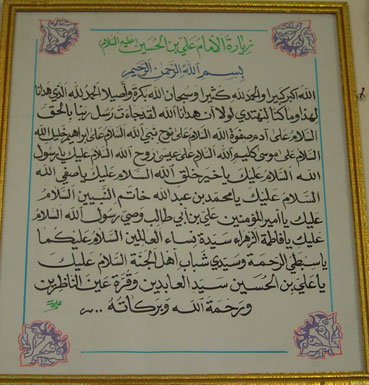 زيارة الإمام علي بن الحسين (عليه السلام)
بسم الله الرحمن الرحيم
الله اكبر كبيرا والحمد لله كثيرا وسبحان الله بكرة وأصيلا الحمد لله الذي هدانا
لهذا وما كنا لنهتدي لولا أن هدانا الله لقد جاءت رسل ربنا بالحق
السلام على آدم صفوة الله السلام على نوح نبي الله السلام على ابراهيم خليل الله
السلام على موسى كليم الله السلام على عيسى روح الله السلام عليك يا رسول
الله السلام عليك يا خير خلق الله السلام عليك يا صفي الله
السلام عليك يا محمد بن عبد الله خاتم النبيين السلام
عليك يا امير المؤمنين علي بن أبي طالب وصي رسول الله السلام
عليك يا فاطمة الزهراء سيدة نساء العالمين السلام عليكما
يا سبطي الرحمة وسيدي شباب أهل الجنة السلام عليك
يا علي بن الحسين سيد العابدين وقرة عين الناظرين
ورحمة الله وبركاته ...